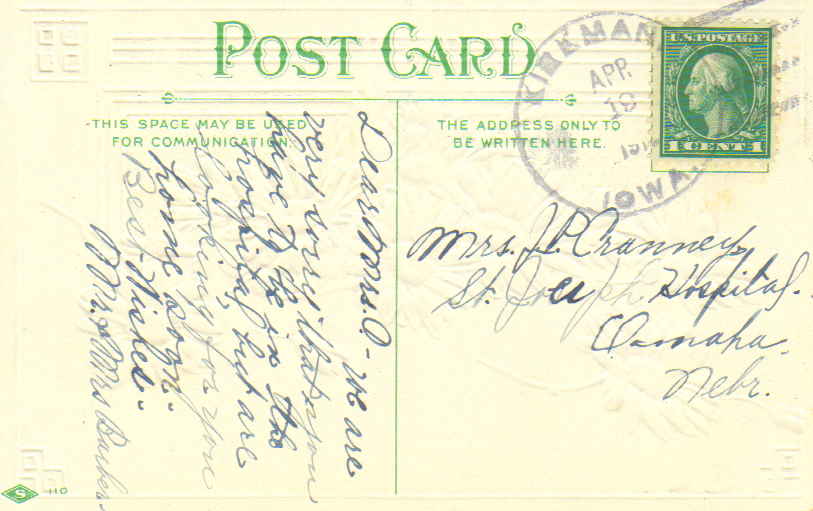 POST CARD
THIS SPACE MAY BE USED
FOR COMMUNICATION.
THE ADDRESS ONLY TO
BE WRITTEN HERE.
KIRKMAN,
APR
19
191
IOWA.
U.S. POSTAGE
1 CENT 1
Dear Mrs. C - We are
very sorry that you
have to be in the
hospital, but are
looking for you
home soon.
Best Wishes-
Mr. & Mrs Barber-
Mrs. J.P. Cranney,
St. Joseph Hospital.
Omaha.
Nebr.
S
110